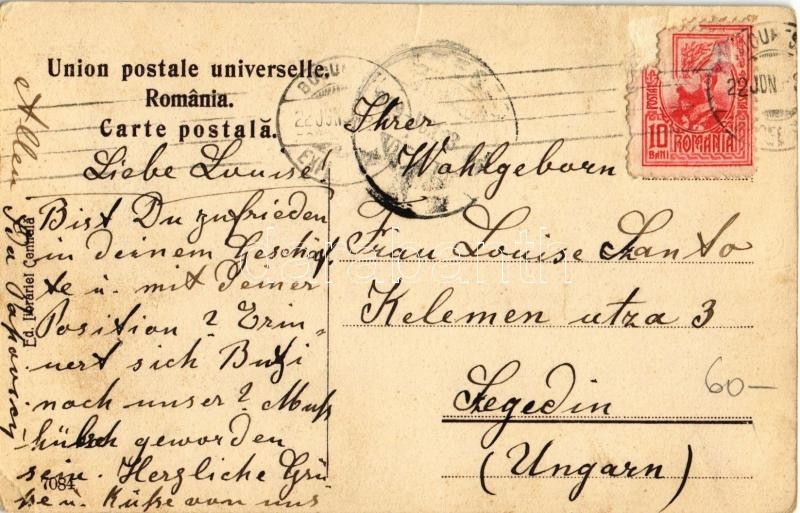 Union postale universelle.
România.
Carte postală.
Liebe Louise!
Bist Du zufrieden
in deinem Geschäf-
te u. mit Deiner
Position? Erin-
nert sich Butzi
noch unser? Muß
hübsch geworden
sein. Herzliche Grü-
ße u. Küße von uns
Allen
Ihrer
Wohlgeborn
Frau Louise Szanto
Kelemen utza 3
Szegedin
(Ungarn)
60-
10
BANI
POSTA
ROMANIA
22 JUN
22 JUN
Ed. Librăriei Centrala
7084
darabanth